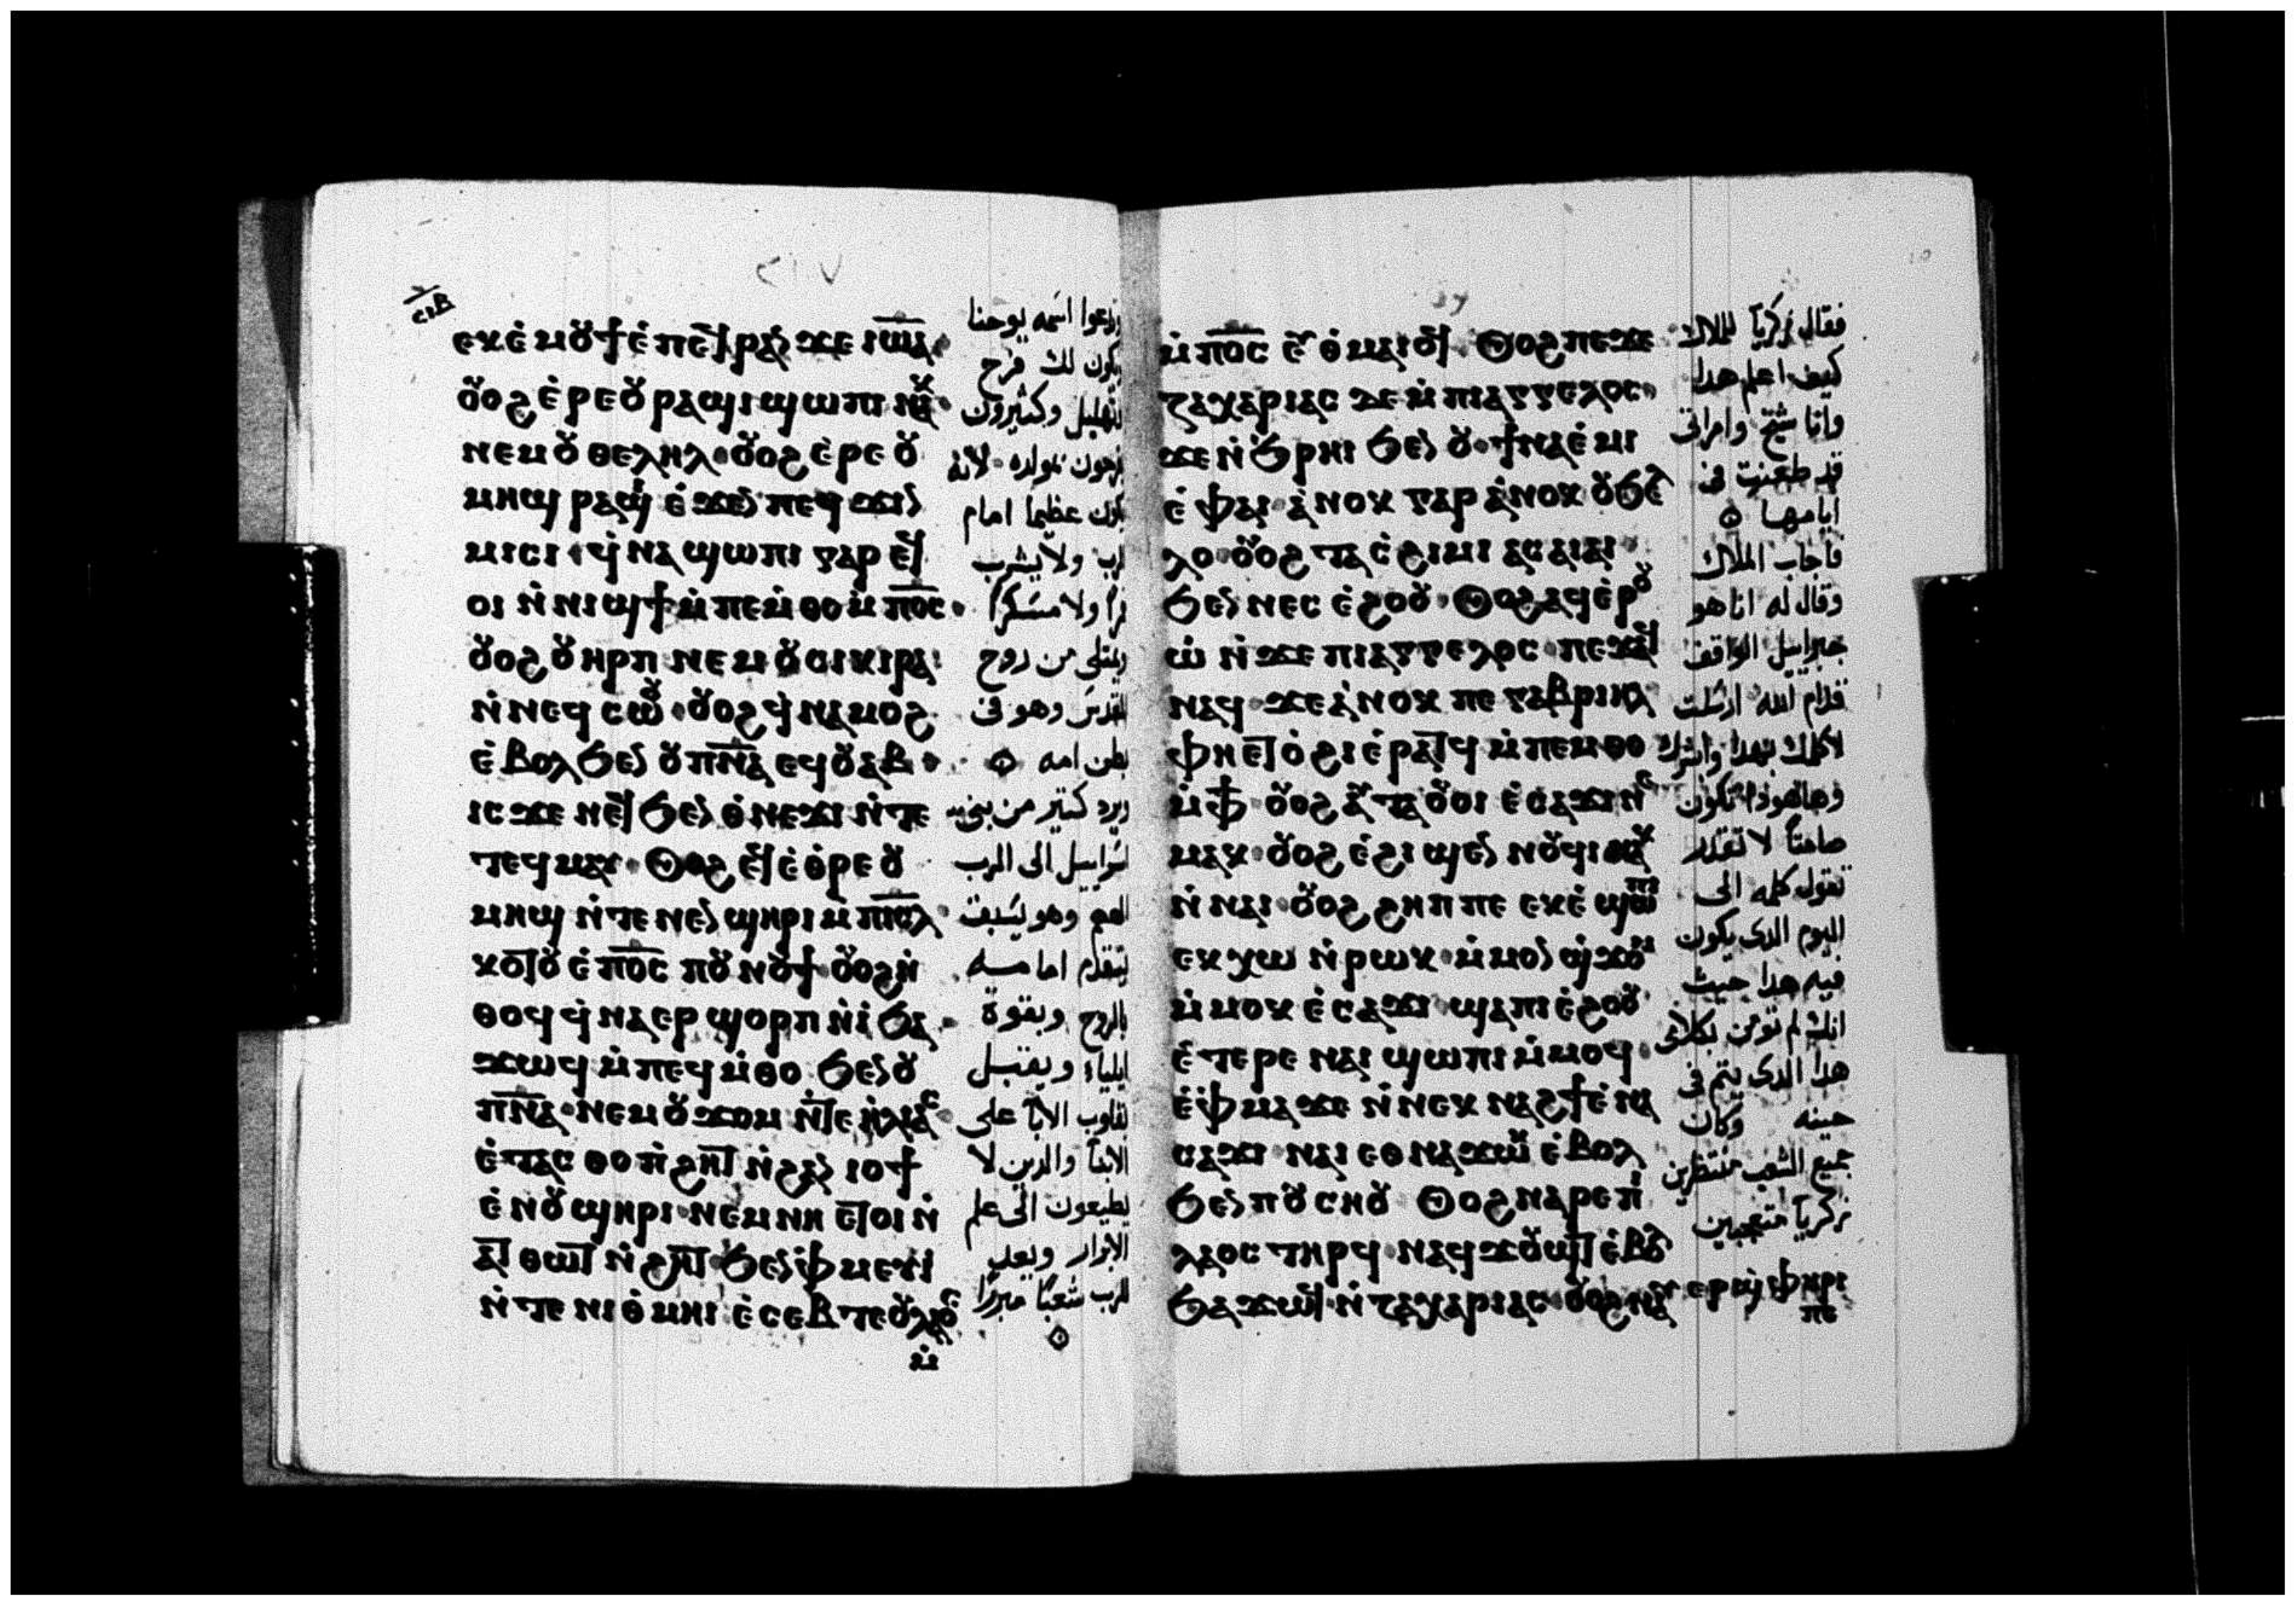 ⲥⲓⲃ
ⲉⲕⲉ̀ ⲙⲟⲩϯ ⲉ̀ ⲡⲉϥⲣⲁⲛ ϫⲉ ⲓⲱ̅ⲁ̅
ⲟⲩⲟϩ ⲉ̀ⲣⲉ ⲟⲩⲣⲁϣⲓ ϣⲱⲡⲓ ⲛⲁⲕ
ⲛⲉⲙ ⲟⲩ ⲑⲉⲗⲏⲗ ⲟⲩⲟϩ ⲉ̀ⲣⲉ ⲟⲩ
ⲙⲏϣ ⲣⲁϣⲓ ⲉ̀ϫⲉⲛ ⲡⲉϥ ϫⲓⲛ
ⲙⲓⲥⲓ ϥ̀ⲛⲁ ϣⲱⲡⲓ ⲅⲁⲣ ⲉϥ
ⲟⲓ ⲛ̀ ⲛⲓϣϯ ⲙ̀ⲡⲉⲙ̀ⲑⲟ ⲙ̀ ⲡ̅ⲟ̅ⲥ̅
ⲟⲩⲟϩ ⲟⲩ ⲏⲣⲡ ⲛⲉⲙ ⲟⲩ ⲥⲓⲕⲓⲣⲁ
ⲛ̀ⲛⲉϥ ⲥⲱⲟⲩ ⲟⲩⲟϩ ϥ̀ ⲛⲁⲙⲟϩ
ⲉ̀ⲃⲟⲗ ϧⲉⲛ ⲟⲩ ⲡ̅ⲛ̅ⲁ̅ ⲉϥⲟⲩⲁⲃ
ⲓⲥϫⲉ ⲛⲉϥ ϧⲉⲛ ⲑ̀ⲛⲉϫⲓ ⲛ̀ⲧⲉ
ⲧⲉϥⲙⲁⲩ ⲟⲩⲟϩ ⲉϥⲉ̀ⲑ̀ⲣⲉ ⲟⲩ
ⲙⲏϣ ⲛ̀ⲧⲉ ⲛⲉⲛϣⲏⲣⲓ ⲙ̀ ⲡⲓ̅ⲥ̅ⲗ̅
ⲕⲟⲧⲟⲩ ⲉ̀ ⲡ̅ⲟ̅ⲥ̅ ⲡⲟⲩ ⲛⲟⲩϯ ⲟⲩⲟϩ ⲛ̀
ⲑⲟϥ ϥ̀ ⲛⲁⲉⲣ ϣⲟⲣⲡ ⲛ̀ⲓ̀ ϧⲁ
ϫⲱϥ ⲙ̀ⲡⲉϥ ⲙ̀ⲑⲟ ϧⲉⲛ ⲟⲩ
ⲡ̅ⲛ̅ⲁ̅ ⲛⲉⲙ ⲟⲩ ϫⲟⲙ ⲛ̀ⲧⲉ ⲏ̀ⲗⲓⲁⲥ
ⲉ̀ ⲧⲁⲥⲑⲟ ⲛ̀ϩⲏⲧ ⲛ̀ϩⲁⲛ ⲓⲟϯ
ⲉ̀ ⲛⲟⲩ ϣⲏⲣⲓ ⲛⲉⲙ ⲛⲏ ⲉⲧⲟⲓ ⲛ̀
ⲁⲧ ⲑⲱⲧ ⲛ̀ϩⲏⲧ ϧⲉⲛ ⲫ̀ⲙⲉⲩⲓ
ⲛ̀ⲧⲉ ⲛⲓⲑ̀ⲙⲏⲓ ⲉ̀ ⲥⲉⲃⲧⲉ ⲟⲩⲗⲁⲟⲥ
ⲙ̀
وتدعوا اسمه يوحنا
ويكون لك فرح
وتهليل وكثيرون
يفرحون بمولده لانه
يكون عظيما امام
الرب ولا يشرب
خمرا ولا مسكرا
ويمتلى من روح
القدس وهو فى
بطن امه
ويرد كتير من بنى
اسراييل الى الرب
الههم وهو يسبق
يتقدم امامه
بالروح وبقوة
ايلياء ويقبل
بقلوب الابآ على
الابنآ والدين لا
يطيعون الى علم
الابرار ويعد
للرب شعبا مبررا
ⲙ̀ ⲡ̅ⲟ̅ⲥ̅ ⲉϥ ⲑ̀ⲙⲁⲓⲟϥ ⲟⲩⲟϩ ⲡⲉϫⲉ
ⲍⲁⲭⲁⲣⲓⲁⲥ ϫⲉ ⲙ̀ ⲡⲓⲁⲅⲅⲉⲗⲟⲥ
ϫⲉ ⲛ̀ϧ̀ⲣⲏⲓ ϧⲉⲛ ⲟⲩ ϯⲛⲁⲉ̀ⲙⲓ
ⲉ̀ ⲫⲁⲓ ⲁ̀ⲛⲟⲕ ⲅⲁⲣ ⲁ̀ⲛⲟⲕ ⲟⲩϧⲉⲗ
ⲗⲟ ⲟⲩⲟϩ ⲧⲁ ⲥ̀ϩⲓⲙⲓ ⲁⲥⲁⲓⲁⲓ
ϧⲉⲛ ⲛⲉⲥ ⲉ̀ϩⲟⲟⲩ ⲟⲩⲟϩ ⲁϥⲉ̀ⲣⲟⲩ
ⲱ̀ ⲛ̀ϫⲉ ⲡⲓⲁⲅⲅⲉⲗⲟⲥ ⲡⲉϫⲁϥ
ⲛⲁϥ ϫⲉ ⲁ̀ⲛⲟⲕ ⲡⲉ ⲅⲁⲃⲣⲓⲏⲗ
ⲫⲏ ⲉⲧ ⲟ̀ϩⲓ ⲉ̀ⲣⲁⲧϥ ⲙ̀ⲡⲉⲙⲑⲟ
ⲙ̀ ⲫϯ ⲟⲩⲟϩ ⲁⲩⲧⲁⲟⲩⲟⲓ ⲉ̀ⲥⲁϫⲓ ⲛⲉ
ⲙⲁⲕ ⲟⲩⲟϩ ⲉ̀ϩⲓ ϣⲉⲛ ⲛⲟⲩϥⲓ ⲛⲁⲕ
ⲛ̀ ⲛⲁⲓ ⲟⲩⲟϩ ϩⲏⲡⲡⲉ ⲉⲕⲉ̀ ϣⲱⲡⲓ
ⲉⲕ ⲭⲱ ⲛ̀ⲣⲱⲕ ⲙ̀ⲙⲟⲛ ϣ̀ϫⲟⲙ
ⲙ̀ⲙⲟⲕ ⲉ̀ⲥⲁϫⲓ ϣⲁ ⲡⲓⲉ̀ϩⲟⲟⲩ
ⲉ̀ ⲧⲉⲣⲉ ⲛⲁⲓ ϣⲱⲡⲓ ⲙ̀ⲙⲟϥ
ⲉ̀ⲫ̀ⲙⲁ ϫⲉ ⲙ̀ⲡⲉⲕ ⲛⲁϩϯ ⲉ̀ ⲛⲁ
ⲥⲁϫⲓ ⲛⲁⲓ ⲉⲑⲛⲁϫⲱⲕ ⲉ̀ⲃⲟⲗ
ϧⲉⲛ ⲡⲟⲩ ⲥⲏⲟⲩ ⲟⲩⲟϩ ⲛⲁⲣⲉ ⲡⲓ
ⲗⲁⲟⲥ ⲧⲏⲣϥ ⲛⲁϥ ϫⲟⲩϣⲧ ⲉ̀ⲃⲟⲗ
ϧⲁϫⲱϥ ⲛ̀ ⲍⲁⲭⲁⲣⲓⲁⲥ ⲟⲩⲟϩ ⲛⲁⲩ ⲉⲣϣ̀ⲫⲏⲣⲓ
ⲡⲉ
فقال زكريآ للملاك
كيف اعلم هدا
وانا شيخ وامراتى
قد طعنت فى
ايامها
فاجاب الملاك
وقال له انا هو
جبراييل الواقف
قدام الله ارسلت
لاكلمك بهدا وابشرك
وهاهودا تكون
صامتا لا تقدر
تقول كلمه الى
اليوم الدى يكون
فيه هدا حيث
انك لم تومن بكلامى
هدا الدى يتم فى
حينه وكان
جميع الشعب منتظرين
زكريآ متعجبين